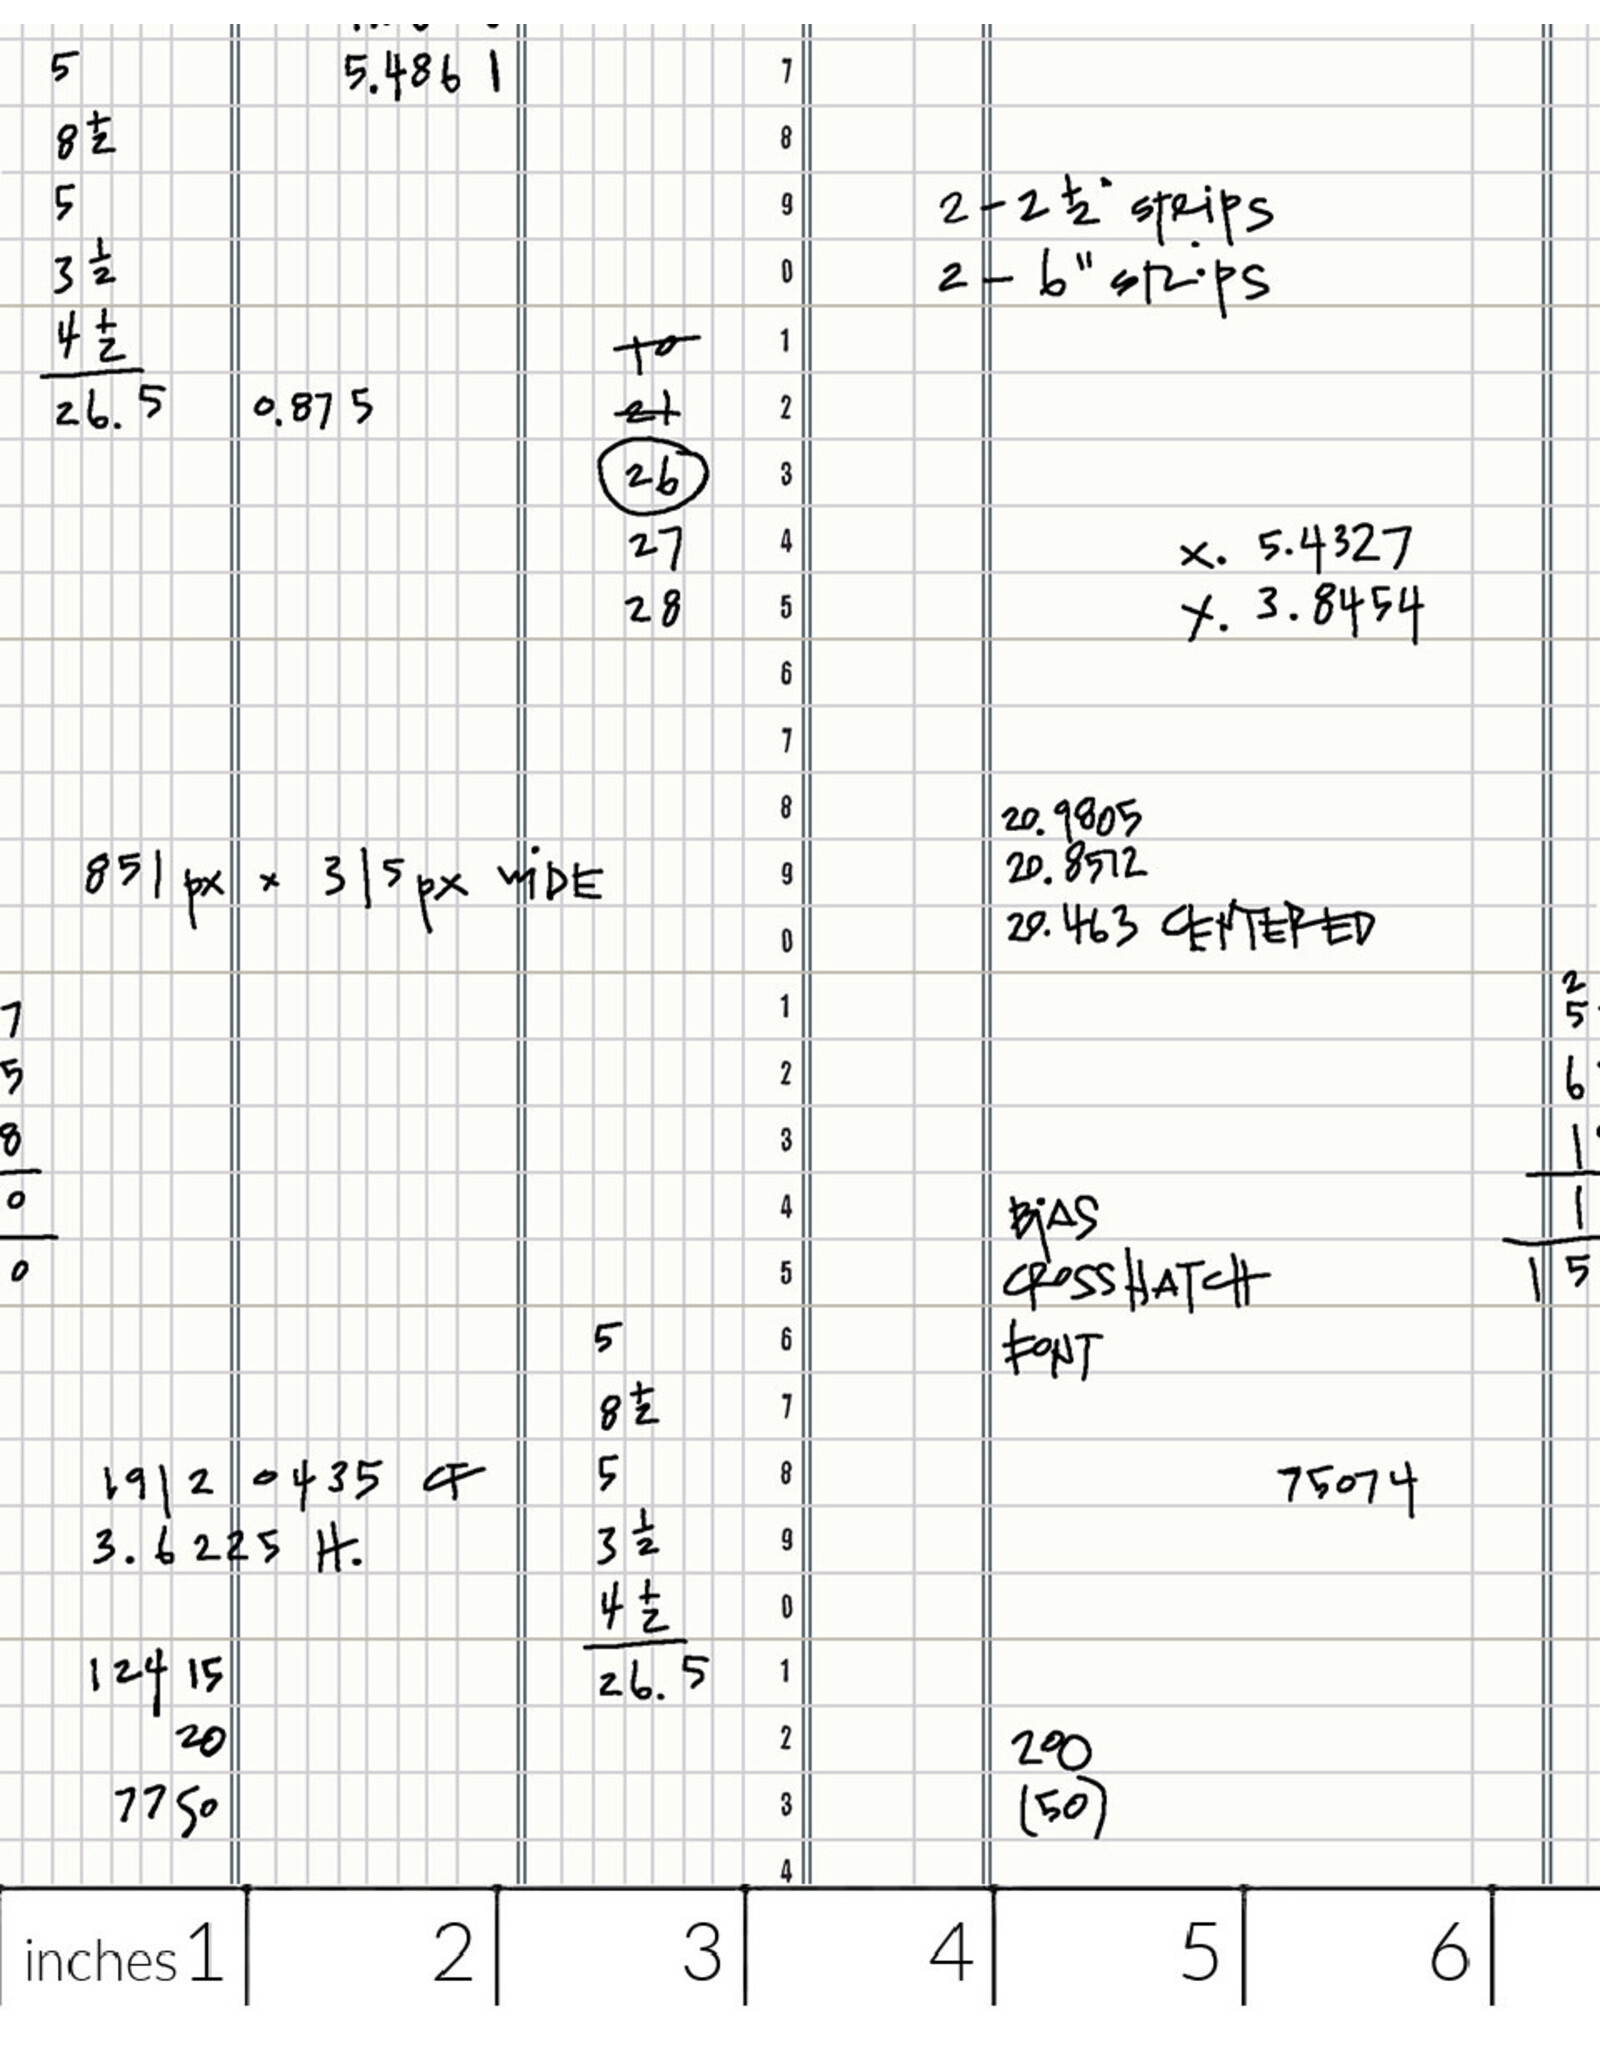 5
8 1/2
5
3 1/2
4 1/2
26.5
5.486 1
0.875
10
21
26
27
28
851 px x 315 px WIDE
7
5
8
0
0
1912 0435 CF
3.6225 H.
124 15
20
7750
5
8 1/2
5
3 1/2
4 1/2
26.5
7
8
9
0
1
2
3
4
5
6
7
8
9
0
1
2
3
4
5
6
7
8
9
0
1
2
3
4
2 - 2 1/2" strips
2 - 6" strips
x. 5.4327
y. 3.8454
20.9805
20.8512
20.463 CENTERED
BIAS
CROSSHATCH
FONT
75074
200
(50)
2
5
6
1
1
15
inches 1 2 3 4 5 6